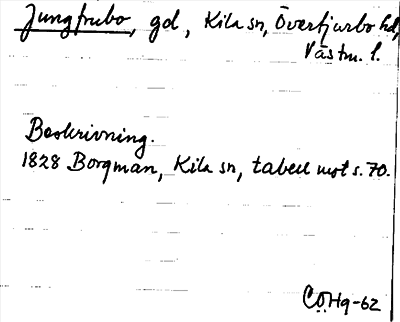 Jungfrubo, gd, Kila sn, Övertjurbo hd,
Västm. l.
Beskrivning.
1828 Borgman, Kila sn, tabell mot s. 70.
CÖHg-62